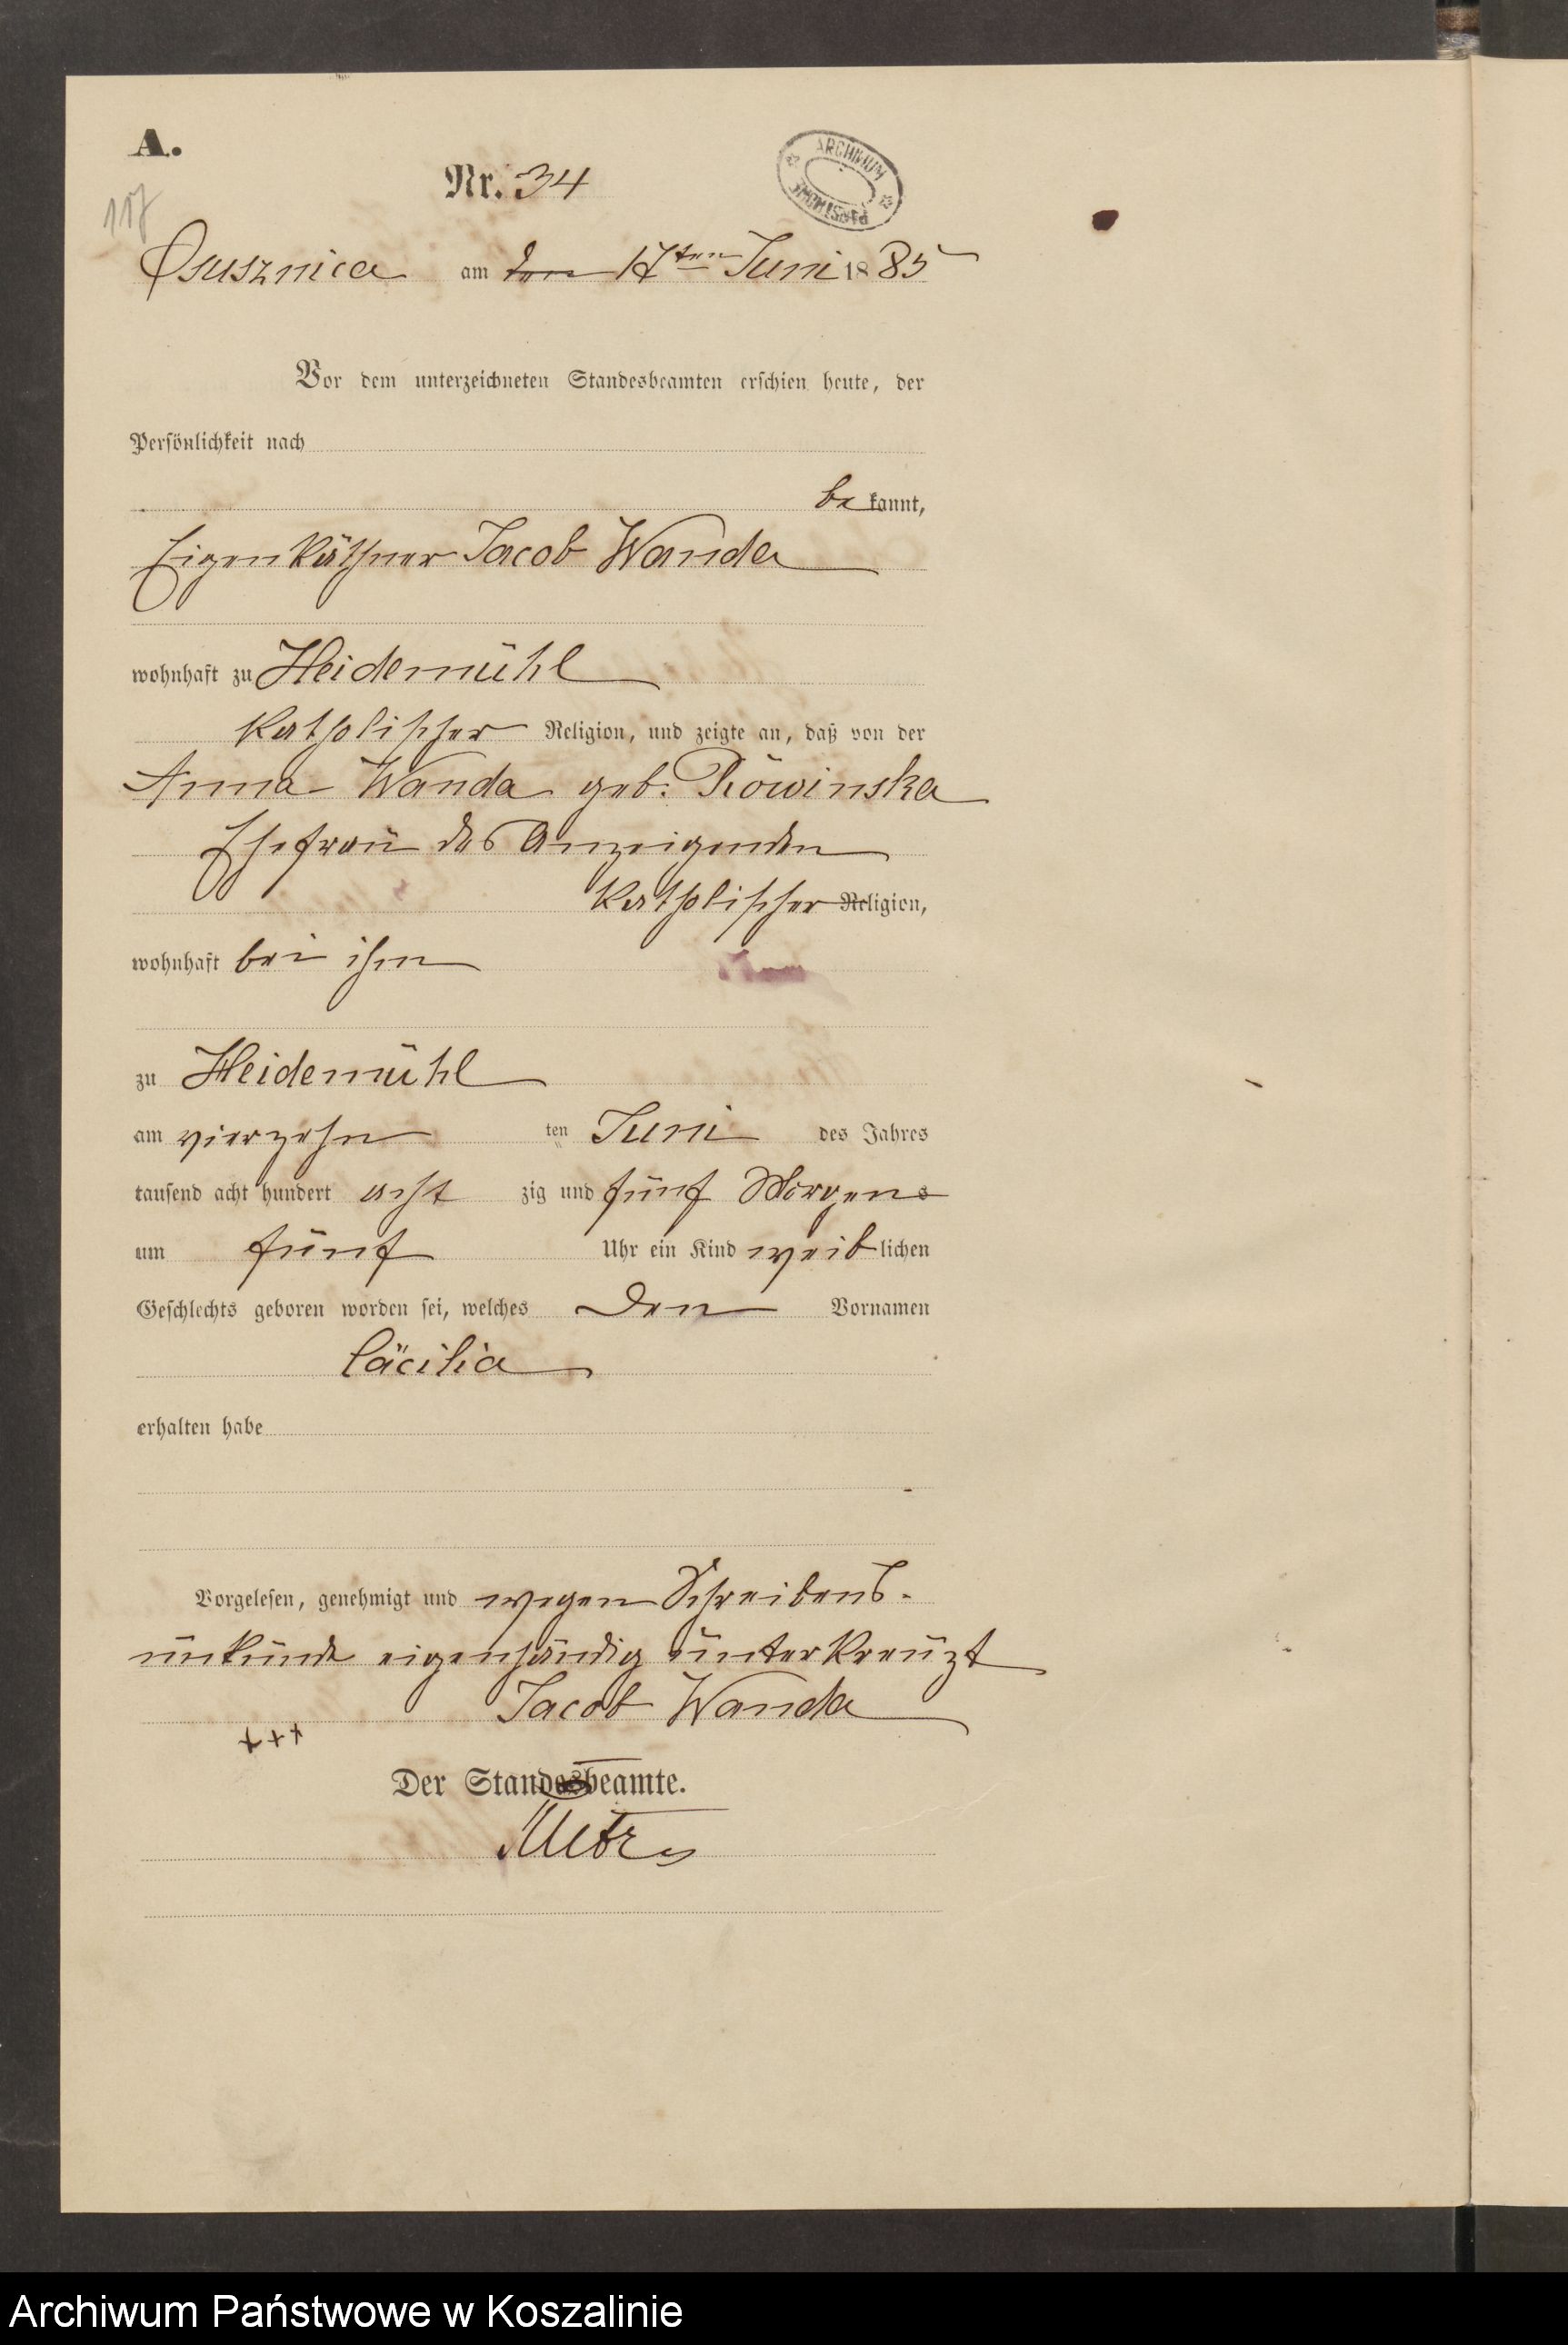 A.
Nr. 34
ARCHIWUM PAŃSTWOWE
117
Osusznica am den 17ten Juni 1885
Vor dem unterzeichneten Standesbeamten erschien heute, der
Persönlichkeit nach
bekannt,
Eigenkäthner Jacob Wanda
wohnhaft zu Heidemühl
katholischer Religion, und zeigte an, daß von der
Anna Wanda geb. Röwinska
Ehefrau des Anzeigenden
katholischer Religion,
wohnhaft bei ihm
zu Heidemühl
am vierzehn ten Juni des Jahres
tausend acht hundert acht zig und fünf Morgens
um fünf Uhr ein Kind weiblichen
Geschlechts geboren worden sei, welches den Vornamen
Cäcilia
erhalten habe
Vorgelesen, genehmigt und wegen Schreibens-
unkunde eigenhändig unterkreuzt
Jacob Wanda
+++
Der Standesbeamte.
Archiwum Państwowe w Koszalinie